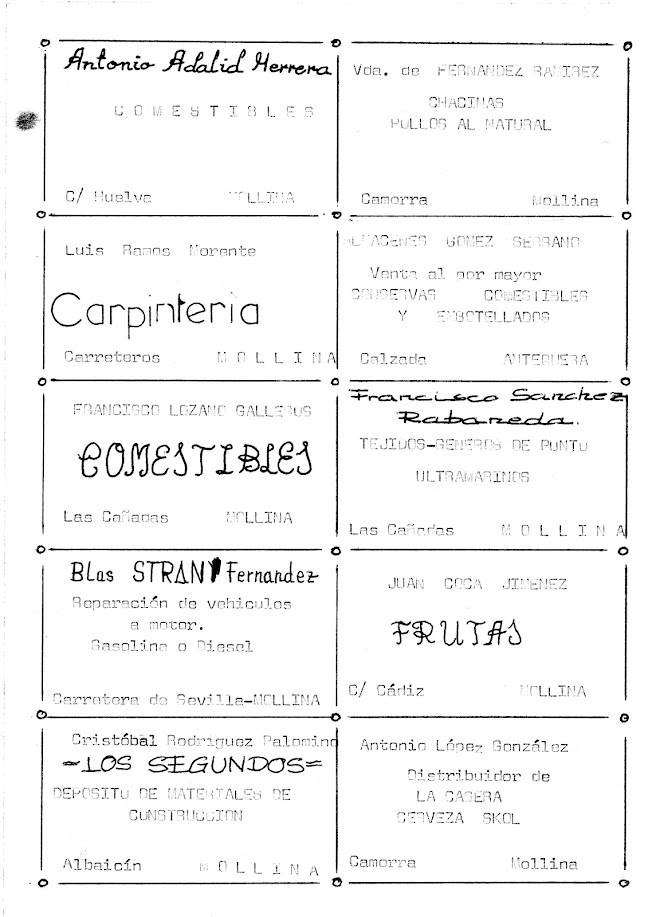 Antonio Adalid Herrera
COMESTIBLES
C/ Huelva MOLLINA
Vda. de FERNANDEZ RAMIREZ
CHACINAS
POLLOS AL NATURAL
Camorra Mollina
Luis Ramos Morente
Carpinteria
Carreteros MOLLINA
ALMACENES GOMEZ SERRANO
Venta al por mayor
CONSERVAS COMESTIBLES
Y EMBOTELLADOS
Calzada ANTEQUERA
FRANCISCO LOZANO GALLEGOS
COMESTIBLES
Las Cañadas MOLLINA
Francisco Sanchez
Rabaneda.
TEJIDOS-GENEROS DE PUNTO
ULTRAMARINOS
Las Cañadas MOLLINA
Blas Fernandez
Reparación de vehiculos
a motor.
Gasolina o Diesel
Carretera de Sevilla-MOLLINA
JUAN COCA JIMENEZ
FRUTAS
C/ Cádiz MOLLINA
Cristóbal Rodriguez Palomino
-LOS SEGUNDOS=
DEPOSITO DE MATERIALES DE
CONSTRUCCION
Albaicín MOLLINA
Antonio López González
Distribuidor de
LA CASERA
CERVEZA SKOL
Camorra Mollina